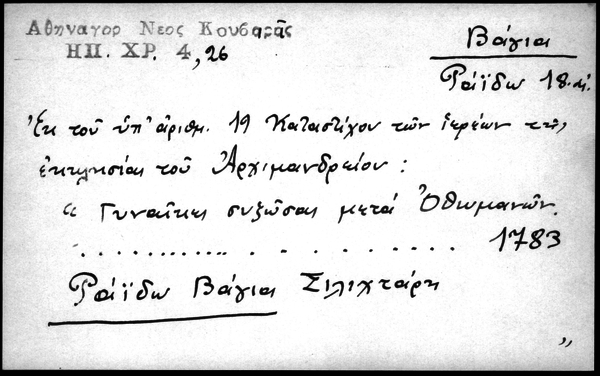 Αθηναγορ Νεος Κουβαρᾶς
ΗΠ. ΧΡ. 4, 26
Βάγια
Ράϊδω 18. αἰ.
Ἐκ τοῦ ὑπ' ἀριθμ. 19 Καταστίχου τῶν ἱερέων τῆς
ἐκκλησίας τοῦ Ἀρχιμανδρείου :
“ Γυναῖκες συζῶσαι μετά Ὀθωμανῶν.
. . . . . . . . . . . . . . . . . . . . 1783
Ράϊδω Βάγια Σιλιχτάρη
”